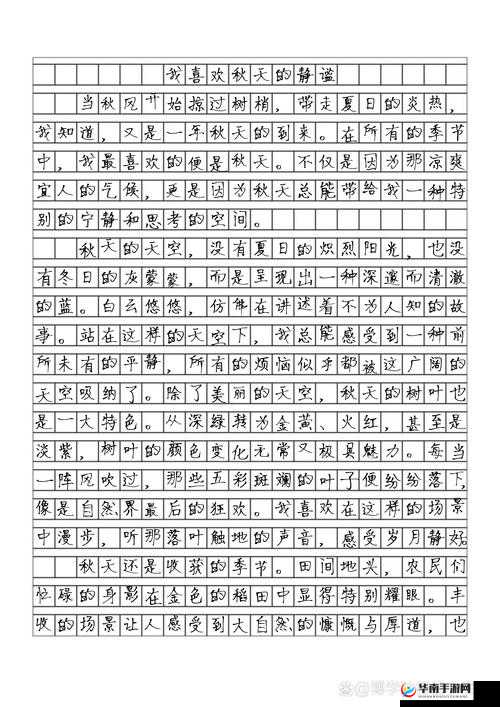 我喜欢秋天的静谧
当秋风开始掠过树梢，带走夏日的炎热，
我知道，又是一年秋天的到来。在所有的季节
中，我最喜欢的便是秋天。不仅是因为那凉爽
宜人的气候，更是因为秋天总能带给我一种特
别的宁静和思考的空间。
秋天的天空，没有夏日的炽烈阳光，也没
有冬日的灰蒙蒙，而是呈现出一种深邃而清澈
的蓝。白云悠悠，仿佛在讲述着不为人知的故
事。站在这样的天空下，我总能感受到一种前
所未有的平静，所有的烦恼似乎都被这广阔的
天空吸纳了。除了美丽的天空，秋天的树叶也
是一大特色。从深绿转为金黄、火红，甚至是
淡紫，树叶的颜色变化无常又极具魅力。每当
一阵风吹过，那些五彩斑斓的叶子便纷纷落下，
像是自然界最后的狂欢。我喜欢在这样的场景
中漫步，听那落叶触地的声音，感受岁月静好
秋天还是收获的季节。田间地头，农民们
忙碌的身影在金色的稻田中显得特别耀眼。丰
收的场景让人感受到大自然的慷慨与厚道，也
华南手游网